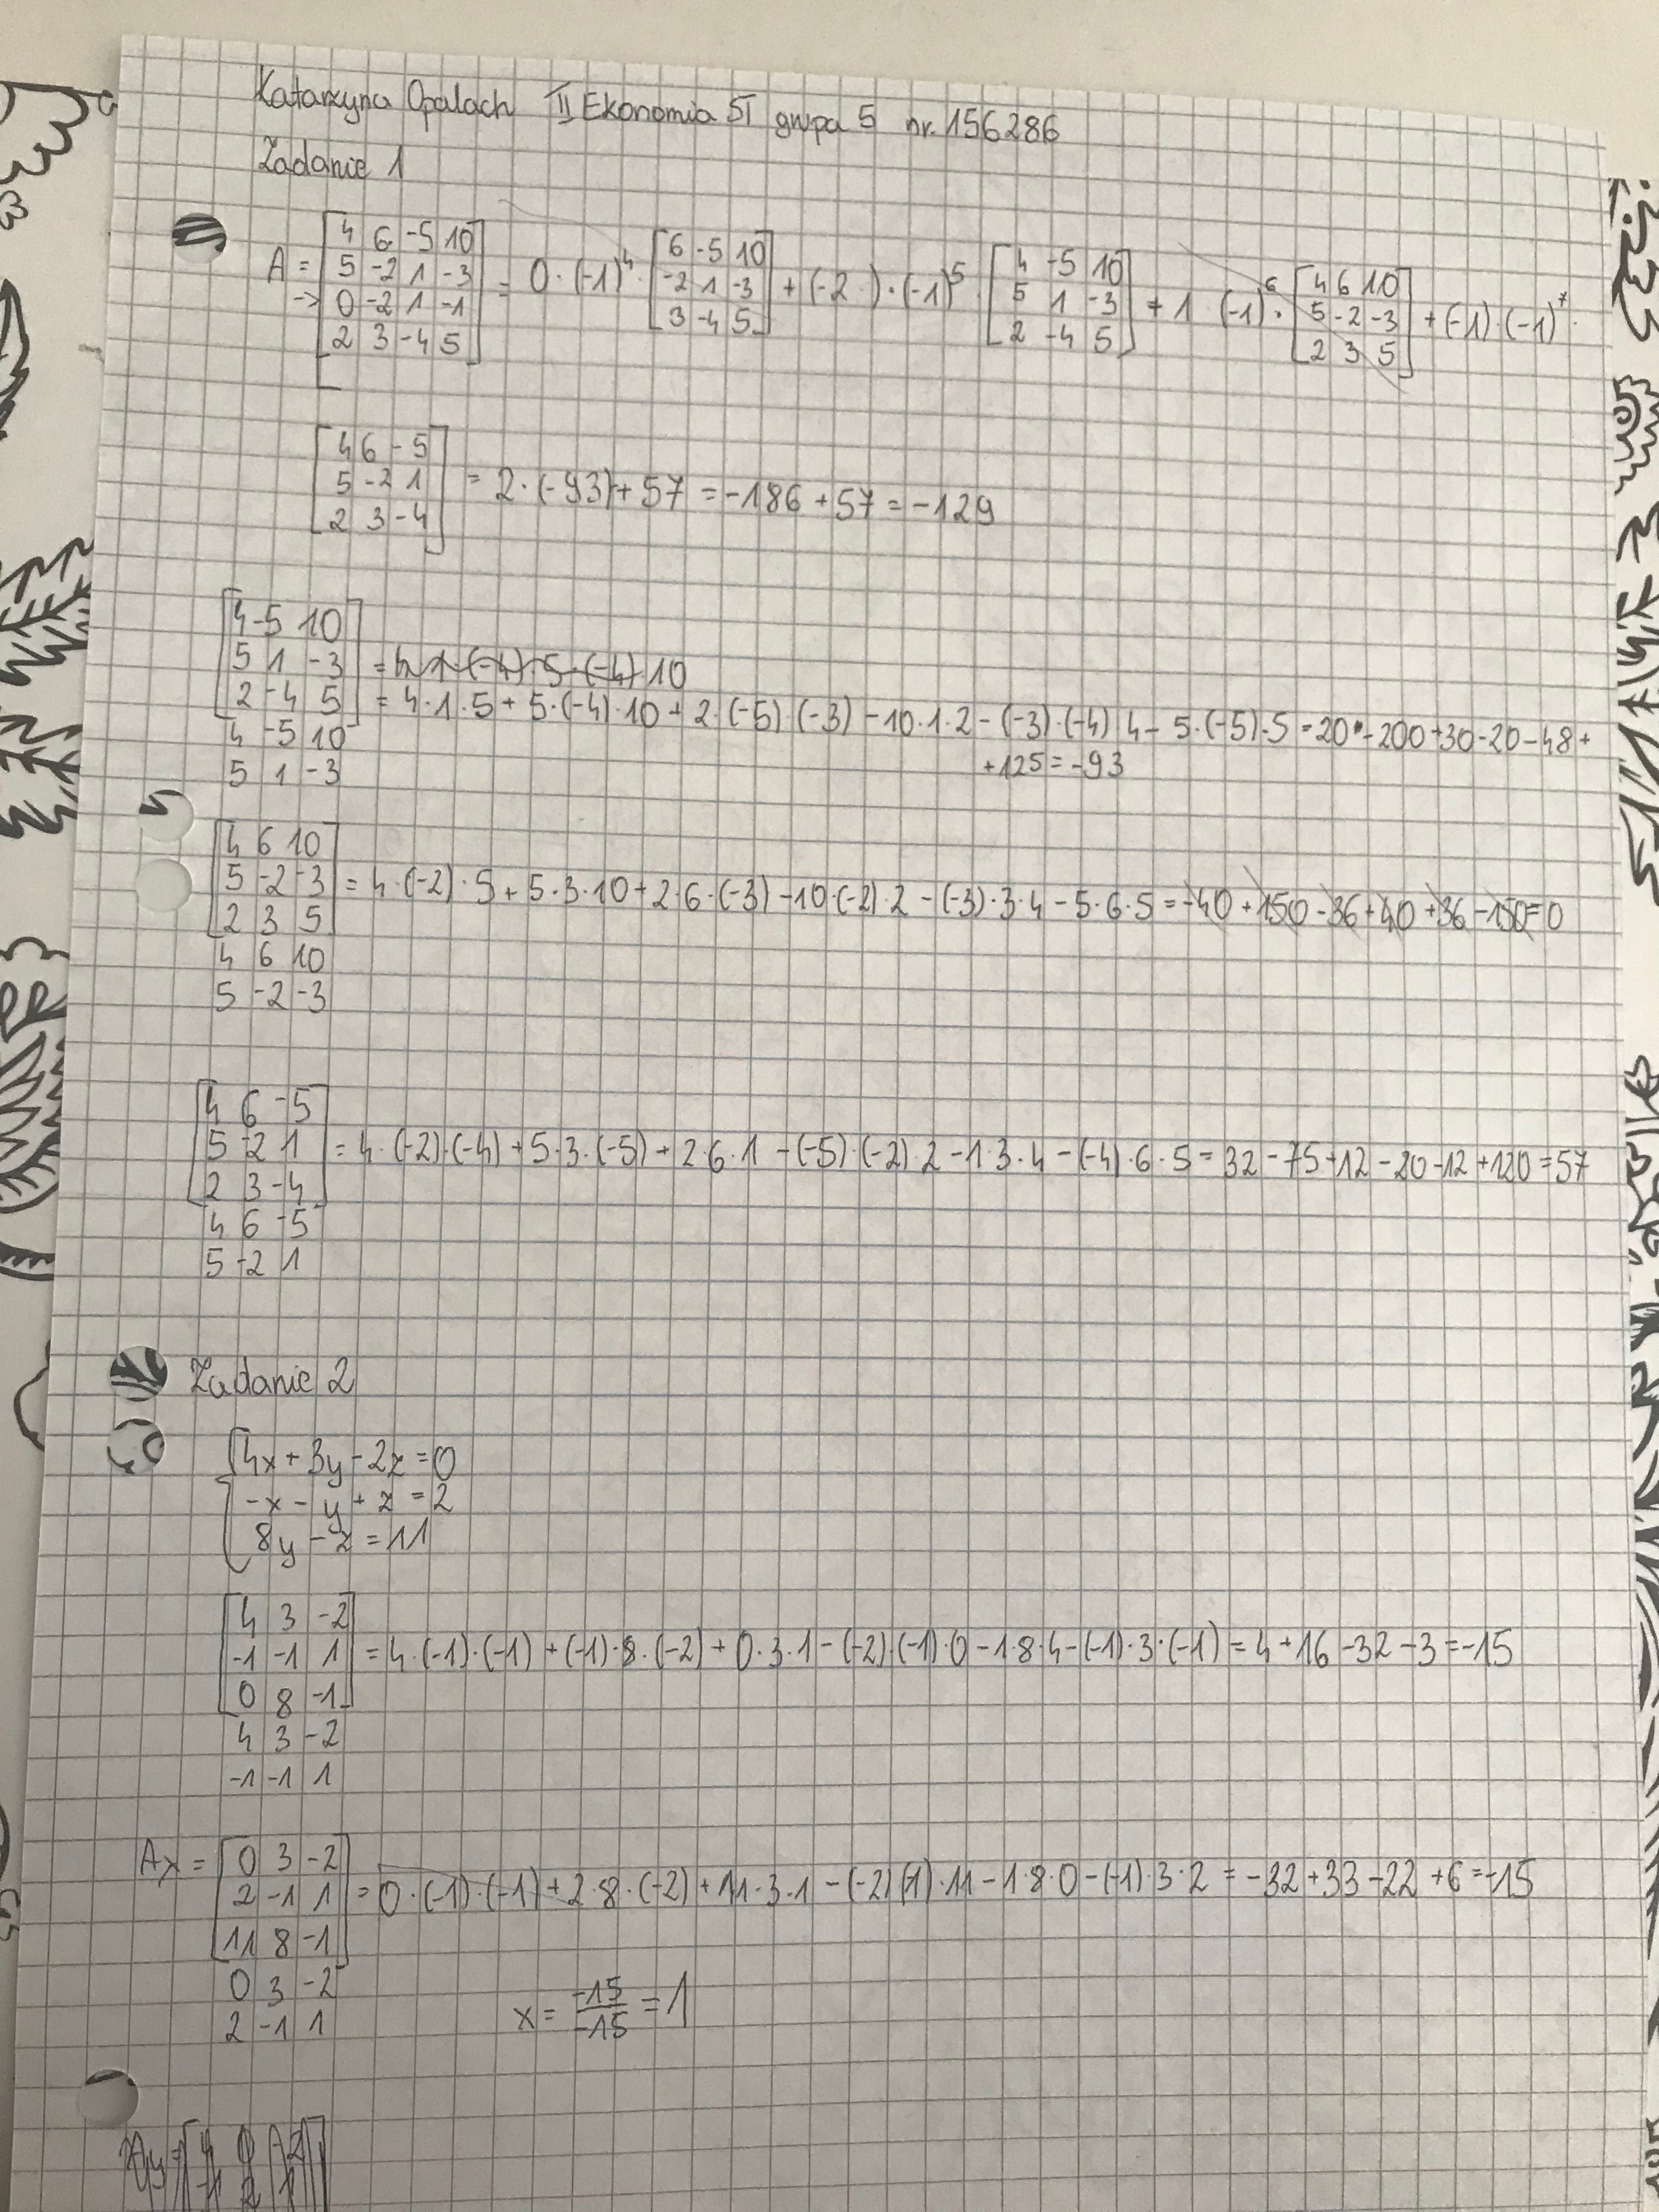 Katarzyna Opalach II Ekonomia ST grupa 5 nr. 156286
Zadanie 1
A = [4 6 -5 10
5 -2 1 -3
-> 0 -2 1 -1
2 3 -4 5] = 0·(-1)^4·[6 -5 10
-2 1 -3
3 -4 5] + (-2)·(-1)^5·[4 -5 10
5 1 -3
2 -4 5] + 1 (-1)^6·[4 6 10
5 -2 -3
2 3 5] + (-1)·(-1)^7·
[4 6 -5
5 -2 1
2 3 -4] = 2·(-93)+57 = -186+57 = -129
[4 -5 10
5 1 -3
2 -4 5] = 4·1·5+5·(-4)·10+2·(-5)·(-3)-10·1·2-(-3)·(-4)·4-5·(-5)·5=20-200+30-20-48+
+125=-93
4 -5 10
5 1 -3
[4 6 10
5 -2 -3
2 3 5] = 4·(-2)·5+5·3·10+2·6·(-3)-10·(-2)·2-(-3)·3·4-5·6·5=-40+150-36+40+36-150=0
4 6 10
5 -2 -3
[4 6 -5
5 -2 1
2 3 -4] = 4·(-2)·(-4)+5·3·(-5)+2·6·1-(-5)·(-2)·2-1·3·4-(-4)·6·5=32-75+12-20-12+120=57
4 6 -5
5 -2 1
Zadanie 2
4x+3y-2z=0
-x-y+z=2
8y-z=11
[4 3 -2
-1 -1 1
0 8 -1] = 4·(-1)·(-1)+(-1)·8·(-2)+0·3·1-(-2)·(-1)·0-1·8·4-(-1)·3·(-1)=4+16-32-3=-15
4 3 -2
-1 -1 1
Ax = [0 3 -2
2 -1 1
11 8 -1] = 0·(-1)·(-1)+2·8·(-2)+11·3·1-(-2)(-1)·11-1·8·0-(-1)·3·2=-32+33-22+6=-15
0 3 -2
2 -1 1
x = -15/-15 = 1